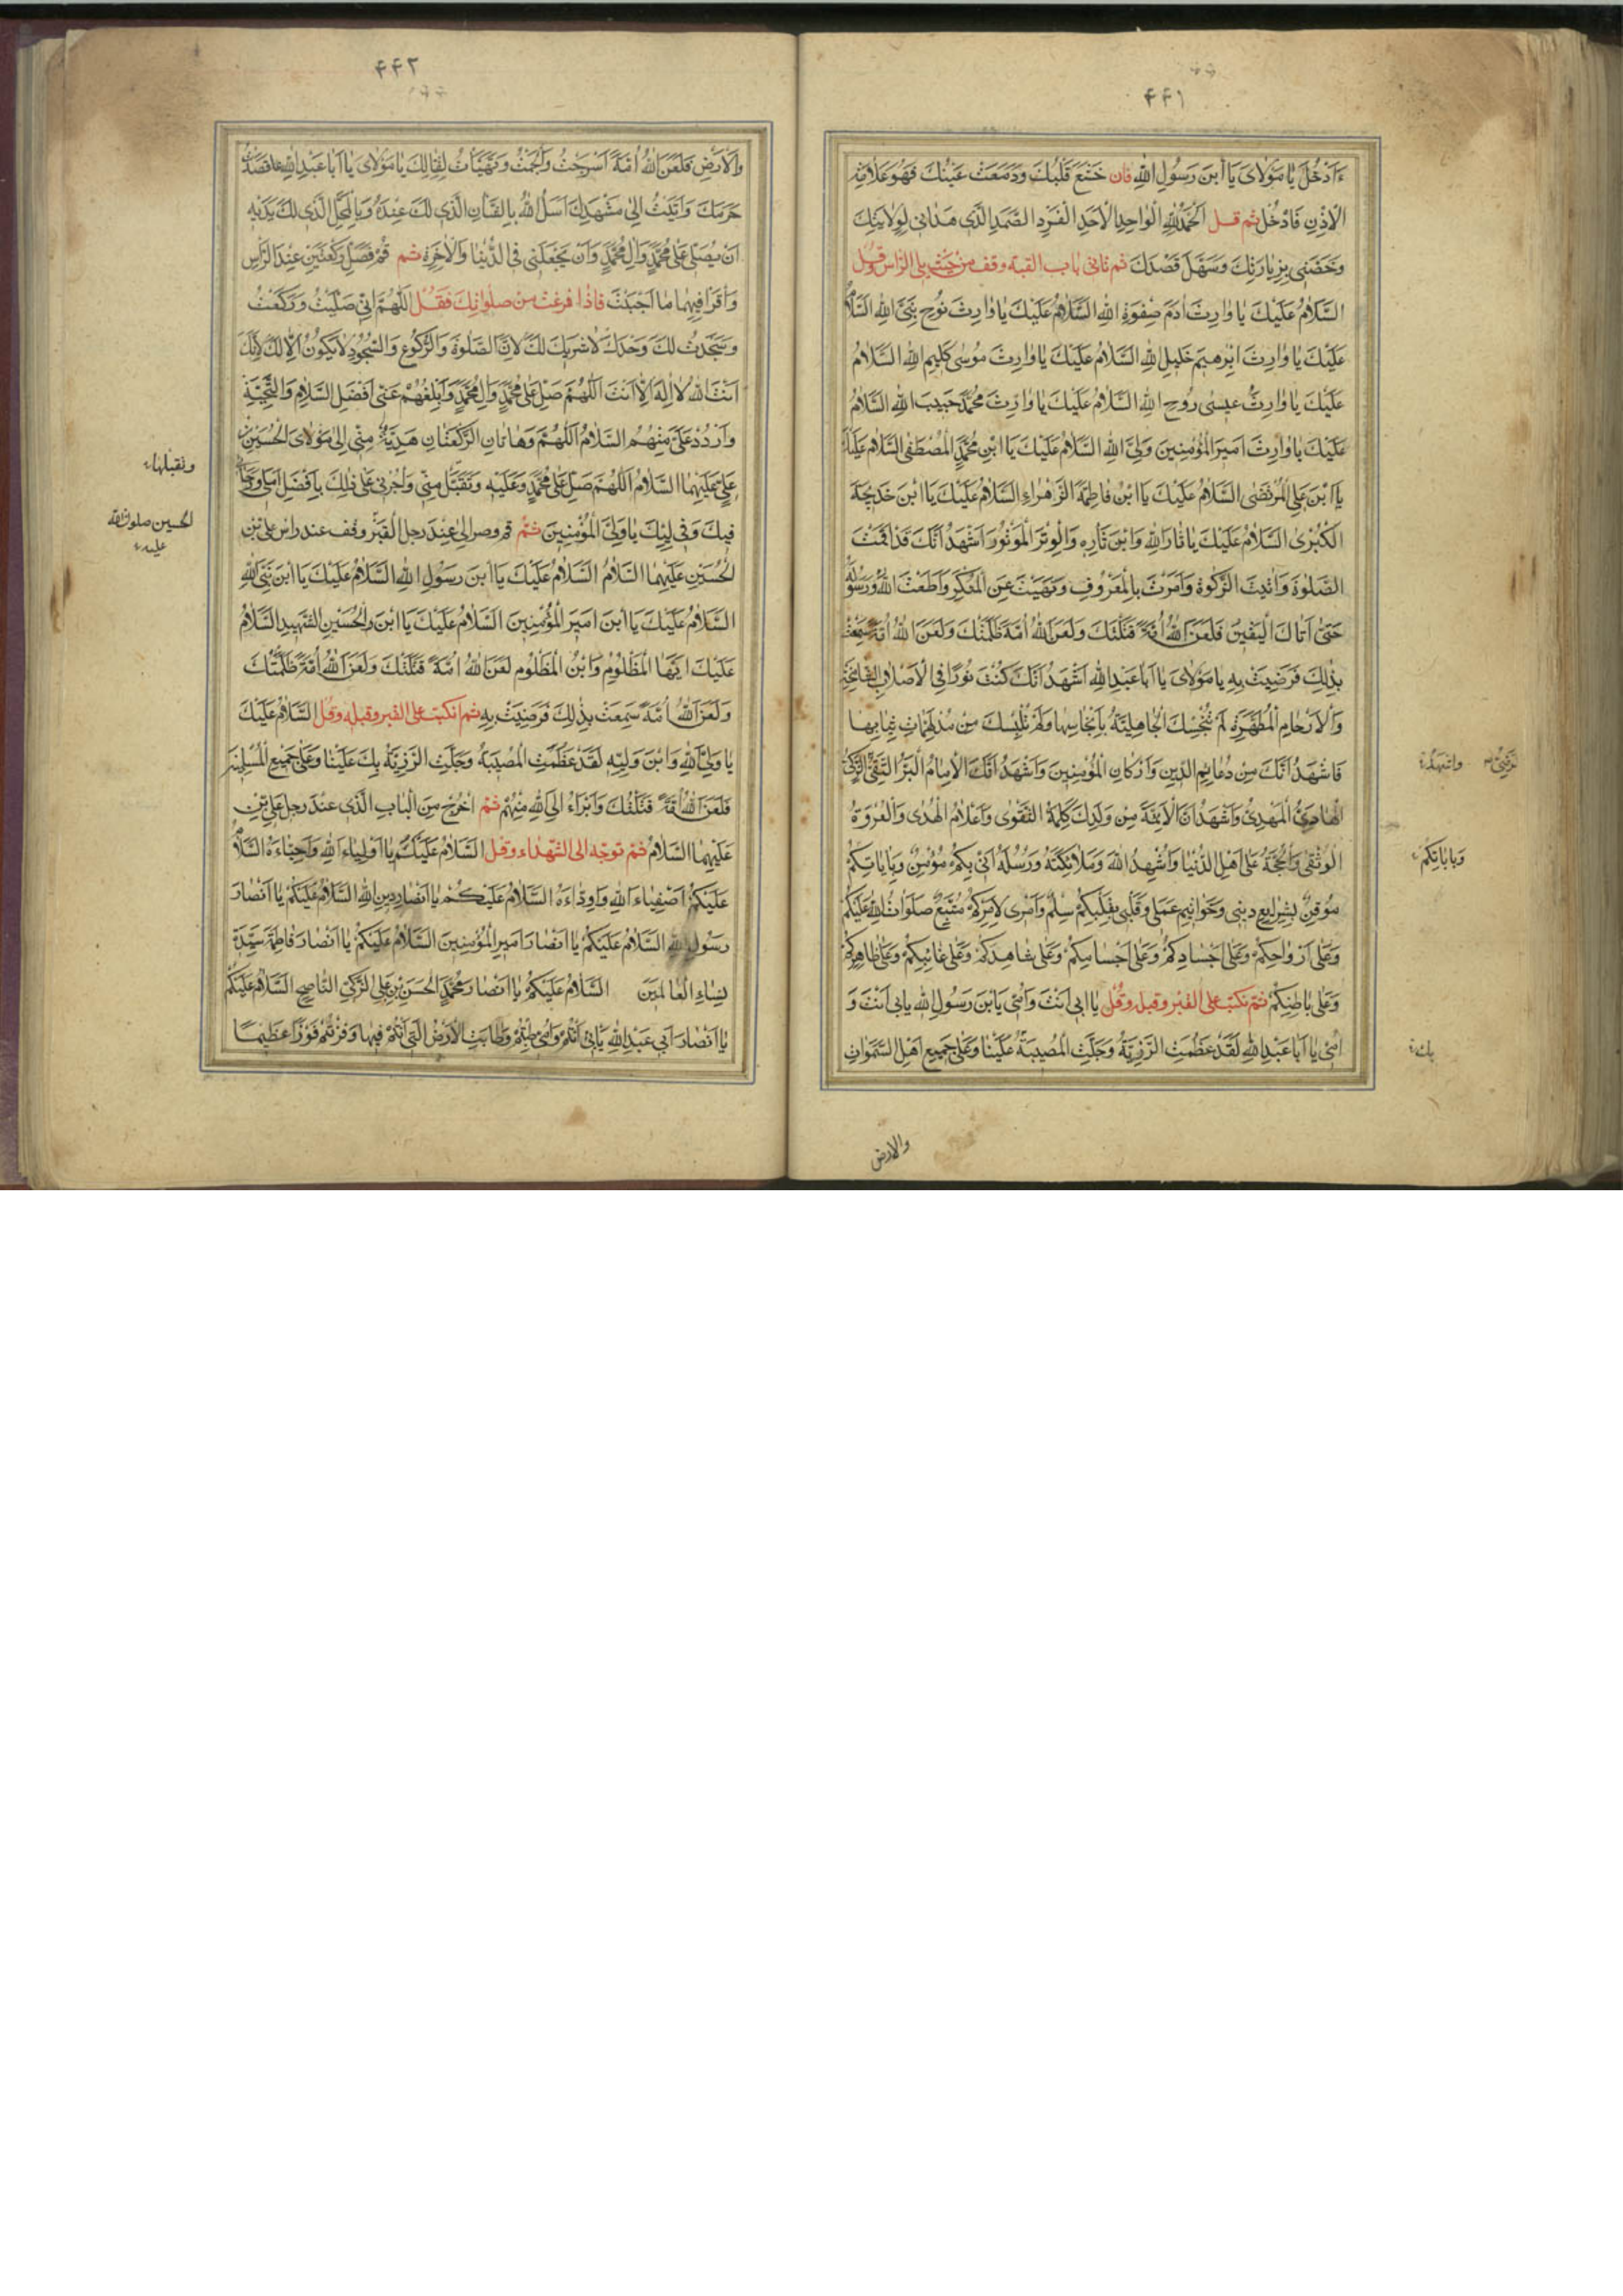 ۴۴۱
ءَاَدْخُلُ يٰا مَوْلاٰىَ يٰا اَبْنَ رَسُولِ اللهِ فان خَشَعَ قَلْبُكَ وَدَمَعَتْ عَيْنُكَ فَهُوَ عَلاٰمَةُ
الْاِذْنِ فَادْخُلْ ثم قل اَلْحَمْدُ لِلّٰهِ الْوٰاحِدِ الْاَحَدِ الْفَرْدِ الصَّمَدِ الَّذى هَدٰانى لِوِلاٰيَتِكَ
وَخَصَّنى بِزِيٰارَتِكَ وَسَهَّلَ لى قَصْدَكَ ثم تاتى باب القبة وقف من حيث يلى الراس وقل
اَلسَّلاٰمُ عَلَيْكَ يٰا وٰارِثَ اٰدَمَ صِفْوَةِ اللهِ السَّلاٰمُ عَلَيْكَ يٰا وٰارِثَ نُوحٍ نَبِىِّ اللهِ السَّلاٰمُ
عَلَيْكَ يٰا وٰارِثَ اِبْرٰهيمَ خَليلِ اللهِ السَّلاٰمُ عَلَيْكَ يٰا وٰارِثَ مُوسٰى كَليمِ اللهِ السَّلاٰمُ
عَلَيْكَ يٰا وٰارِثَ عيسٰى رُوحِ اللهِ السَّلاٰمُ عَلَيْكَ يٰا وٰارِثَ مُحَمَّدٍ حَبيبِ اللهِ السَّلاٰمُ
عَلَيْكَ يٰا وٰارِثَ اَميرِ الْمُؤْمِنينَ وَلِىِّ اللهِ السَّلاٰمُ عَلَيْكَ يٰا ابْنَ مُحَمَّدٍ الْمُصْطَفٰى السَّلاٰمُ عَلَيْكَ
يٰا ابْنَ عَلِىٍّ الْمُرْتَضٰى السَّلاٰمُ عَلَيْكَ يٰا ابْنَ فٰاطِمَةَ الزَّهْرٰاءِ السَّلاٰمُ عَلَيْكَ يٰا ابْنَ خَديجَةَ
الْكُبْرٰى السَّلاٰمُ عَلَيْكَ يٰا ثٰارَ اللهِ وَابْنَ ثٰارِهِ وَالْوِتْرَ الْمَوْتُورَ اَشْهَدُ اَنَّكَ قَدْ اَقَمْتَ
الصَّلٰوةَ وَاٰتَيْتَ الزَّكٰوةَ وَاَمَرْتَ بِالْمَعْرُوفِ وَنَهَيْتَ عَنِ الْمُنْكَرِ وَاَطَعْتَ اللهَ وَرَسُولَهُ
حَتّٰى اَتٰاكَ الْيَقينُ فَلَعَنَ اللهُ اُمَّةً قَتَلَتْكَ وَلَعَنَ اللهُ اُمَّةً ظَلَمَتْكَ وَلَعَنَ اللهُ اُمَّةً سَمِعَتْ
بِذٰلِكَ فَرَضِيَتْ بِهِ يٰا مَوْلاٰىَ يٰا اَبٰا عَبْدِ اللهِ اَشْهَدُ اَنَّكَ كُنْتَ نُورًا فِى الْاَصْلاٰبِ الشّٰامِخَةِ
وَالْاَرْحٰامِ الْمُطَهَّرَةِ لَمْ تُنَجِّسْكَ الْجٰاهِلِيَّةُ بِاَنْجٰاسِهٰا وَلَمْ تُلْبِسْكَ مِنْ مُدْلَهِمّٰاتِ ثِيٰابِهٰا
فَاَشْهَدُ اَنَّكَ مِنْ دَعٰائِمِ الدّينِ وَاَرْكٰانِ الْمُؤْمِنينَ وَاَشْهَدُ اَنَّكَ الْاِمٰامُ الْبَرُّ التَّقِىُّ الزَّكِىُّ
واشهد
الْهٰادِىُ الْمَهْدِىُّ وَاَشْهَدُ اَنَّ الْاَئِمَّةَ مِنْ وَلَدِكَ كَلِمَةُ التَّقْوٰى وَاَعْلاٰمُ الْهُدٰى وَالْعُرْوَةُ
الْوُثْقٰى وَالْحُجَّةُ عَلٰى اَهْلِ الدُّنْيٰا وَاُشْهِدُ اللهَ وَمَلاٰئِكَتَهُ وَرُسُلَهُ اَنّى بِكُمْ مُؤْمِنٌ وَبِاِيٰابِكُمْ
وَبِاِيٰابِكُمْ
مُوقِنٌ بِشَرٰايِعِ دينى وَخَوٰاتيمِ عَمَلى وَقَلْبى لِقَلْبِكُمْ سِلْمٌ وَاَمْرى لِاَمْرِكُمْ مُتَّبِعٌ صَلَوٰاتُ اللهِ عَلَيْكُمْ
وَعَلٰى اَرْوٰاحِكُمْ وَعَلٰى اَجْسٰادِكُمْ وَعَلٰى اَجْسٰامِكُمْ وَعَلٰى شٰاهِدِكُمْ وَعَلٰى غٰائِبِكُمْ وَعَلٰى ظٰاهِرِكُمْ
وَعَلٰى بٰاطِنِكُمْ ثم تكب على القبر وقبله وقل يٰا اَبى اَنْتَ وَاُمّى يَابْنَ رَسُولِ اللهِ بِابى اَنْتَ وَ
اُمّى يٰا اَبٰا عَبْدِ اللهِ لَقَدْ عَظُمَتِ الرَّزِيَّةُ وَجَلَّتِ الْمُصيبَةُ عَلَيْنٰا وَعَلٰى جَميعِ اَهْلِ السَّمٰوٰاتِ
بك
والارض
۴۴۲
وَالْاَرْضِ فَلَعَنَ اللهُ اُمَّةً اَسْرَجَتْ وَاَلْجَمَتْ وَتَهَيَّاَتْ لِقِتٰالِكَ يٰا مَوْلاٰىَ يٰا اَبٰا عَبْدِ اللهِ قَصَدْتُ
حَرَمَكَ وَاَتَيْتُ اِلٰى مَشْهَدِكَ اَسْئَلُ اللهَ بِالشَّاْنِ الَّذى لَكَ عِنْدَهُ وَبِالْمَحَلِّ الَّذى لَكَ لَدَيْهِ
اَنْ يُصَلِّىَ عَلٰى مُحَمَّدٍ وَاٰلِ مُحَمَّدٍ وَاَنْ يَجْعَلَنى فِى الدُّنْيٰا وَالْاٰخِرَةِ ثم قُمْ فَصَلِّ رَكْعَتَيْنِ عِنْدَ الرَّاْسِ
وَاقْرَاْ فيهِمٰا مٰا اَحْبَبْتَ فاذا فرغت من صلواتك فقل اَللّٰهُمَّ اِنّى صَلَّيْتُ وَرَكَعْتُ
وَسَجَدْتُ لَكَ وَحْدَكَ لاٰ شَريكَ لَكَ لِاَنَّ الصَّلٰوةَ وَالرُّكُوعَ وَالسُّجُودَ لاٰ يَكُونُ اِلاّٰ لَكَ لِاَنَّكَ
اَنْتَ اللهُ لاٰ اِلٰهَ اِلاّٰ اَنْتَ اَللّٰهُمَّ صَلِّ عَلٰى مُحَمَّدٍ وَاٰلِ مُحَمَّدٍ وَاَبْلِغْهُمْ عَنّى اَفْضَلَ السَّلاٰمِ وَالتَّحِيَّةِ
وَارْدُدْ عَلَىَّ مِنْهُمُ السَّلاٰمَ اَللّٰهُمَّ وَهٰاتٰانِ الرَّكْعَتٰانِ هَدِيَّةٌ مِنّى اِلٰى مَوْلاٰىَ الْحُسَيْنِ بْنِ
وتقبلها
عَلِىٍّ عَلَيْهِمَا السَّلاٰمُ اَللّٰهُمَّ صَلِّ عَلٰى مُحَمَّدٍ وَعَلَيْهِ وَتَقَبَّلْ مِنّى وَاْجُرْنى عَلٰى ذٰلِكَ بِاَفْضَلِ اَمَلى وَرَجٰائى
فيكَ وَفى وَلِيِّكَ يٰا وَلِىَّ الْمُؤْمِنينَ ثم قم وصر الى عِنْدَ رجل القبر وقف عند راس على بن
الحسين صلوات الله
عليه
الْحُسَيْنِ عَلَيْهِمَا السَّلاٰمُ السَّلاٰمُ عَلَيْكَ يٰا ابْنَ رَسُولِ اللهِ السَّلاٰمُ عَلَيْكَ يٰا ابْنَ نَبِىِّ اللهِ
السَّلاٰمُ عَلَيْكَ يٰا ابْنَ اَميرِ الْمُؤْمِنينَ السَّلاٰمُ عَلَيْكَ يٰا ابْنَ الْحُسَيْنِ الشَّهيدِ السَّلاٰمُ
عَلَيْكَ اَيُّهَا الْمَظْلُومُ وَابْنُ الْمَظْلُومِ لَعَنَ اللهُ اُمَّةً قَتَلَتْكَ وَلَعَنَ اللهُ اُمَّةً ظَلَمَتْكَ
وَلَعَنَ اللهُ اُمَّةً سَمِعَتْ بِذٰلِكَ فَرَضِيَتْ بِهِ ثم انكبّ على القبر وقبله وقل السَّلاٰمُ عَلَيْكَ
يٰا وَلِىَّ اللهِ وَابْنَ وَلِيِّهِ لَقَدْ عَظُمَتِ الْمُصيبَةُ وَجَلَّتِ الرَّزِيَّةُ بِكَ عَلَيْنٰا وَعَلٰى جَميعِ الْمُسْلِمينَ
فَلَعَنَ اللهُ اُمَّةً قَتَلَتْكَ وَاَبْرَاُ اِلَى اللهِ مِنْهُمْ ثم اخْرُجْ مِنَ الْبٰابِ الَّذى عِنْدَ رِجْلِ عَلِىِّ بْنِ
عَلَيْهِمَا السَّلاٰمُ ثم توجّه الى الشهداء وقل السَّلاٰمُ عَلَيْكُمْ يٰا اَوْلِيٰاءَ اللهِ وَاَحِبّٰاءَهُ السَّلاٰمُ
عَلَيْكُمْ اَصْفِيٰاءَ اللهِ وَاَوِدّٰاءَهُ السَّلاٰمُ عَلَيْكُمْ يٰا اَنْصٰارَ دينِ اللهِ السَّلاٰمُ عَلَيْكُمْ يٰا اَنْصٰارَ
رَسُولِ اللهِ السَّلاٰمُ عَلَيْكُمْ يٰا اَنْصٰارَ اَميرِ الْمُؤْمِنينَ السَّلاٰمُ عَلَيْكُمْ يٰا اَنْصٰارَ فٰاطِمَةَ سَيِّدَةِ
نِسٰاءِ الْعٰالَمينَ السَّلاٰمُ عَلَيْكُمْ يٰا اَنْصٰارَ مُحَمَّدٍ الْحَسَنِ بْنِ عَلِىٍّ الزَّكِىِّ النّٰاصِحِ السَّلاٰمُ عَلَيْكُمْ
يٰا اَنْصٰارَ اَبى عَبْدِ اللهِ بِاَبى اَنْتُمْ وَاُمّى طِبْتُمْ وَطٰابَتِ الْاَرْضُ الَّتى اَنْتُمْ فيهٰا وَفُزْتُمْ فَوْزًا عَظيمًا